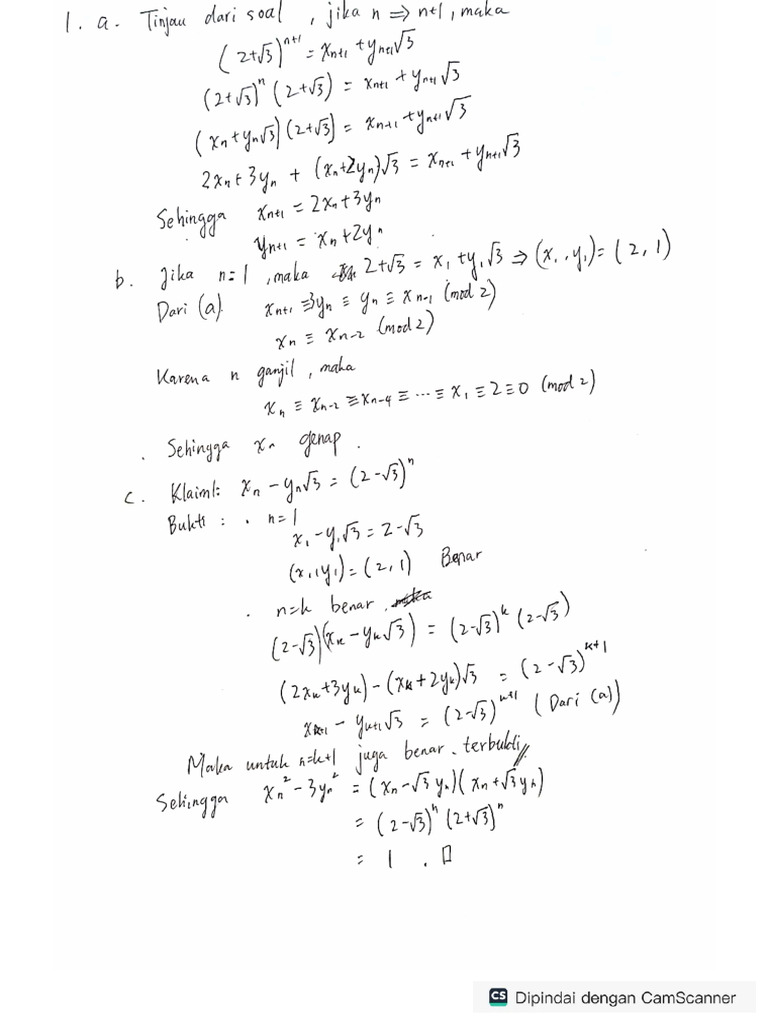 1. a. Tinjau dari soal , jika n ⇒ n+1 , maka
(2+√3)^{n+1} = x_{n+1} + y_{n+1}√3
(2+√3)^n (2+√3) = x_{n+1} + y_{n+1}√3
(x_n+y_n√3)(2+√3) = x_{n+1} + y_{n+1}√3
2x_n+3y_n + (x_n+2y_n)√3 = x_{n+1} + y_{n+1}√3
Sehingga x_{n+1} = 2x_n+3y_n
y_{n+1} = x_n+2y_n
b. Jika n=1 , maka 2+√3 = x_1 + y_1√3 ⇒ (x_1, y_1) = (2, 1)
Dari (a) x_{n+1} ≡ 3y_n ≡ y_n ≡ x_{n-1} (mod 2)
x_n ≡ x_{n-2} (mod 2)
Karena n ganjil , maka
x_n ≡ x_{n-2} ≡ x_{n-4} ≡ ... ≡ x_1 ≡ 2 ≡ 0 (mod 2)
. Sehingga x_n genap .
c. Klaim1: x_n - y_n√3 = (2-√3)^n
Bukti : . n=1
x_1 - y_1√3 = 2-√3
(x_1, y_1) = (2, 1) Benar
. n=k benar .
(2-√3)(x_k - y_k√3) = (2-√3)^k (2-√3)
(2x_k+3y_k) - (x_k+2y_k)√3 = (2-√3)^{k+1}
x_{k+1} - y_{k+1}√3 = (2-√3)^{k+1} (Dari (a))
Maka untuk n=k+1 juga benar . terbukti //
Sehingga x_n^2 - 3y_n^2 = (x_n-√3 y_n)(x_n+√3 y_n)
= (2-√3)^n (2+√3)^n
= 1 . □
CS Dipindai dengan CamScanner